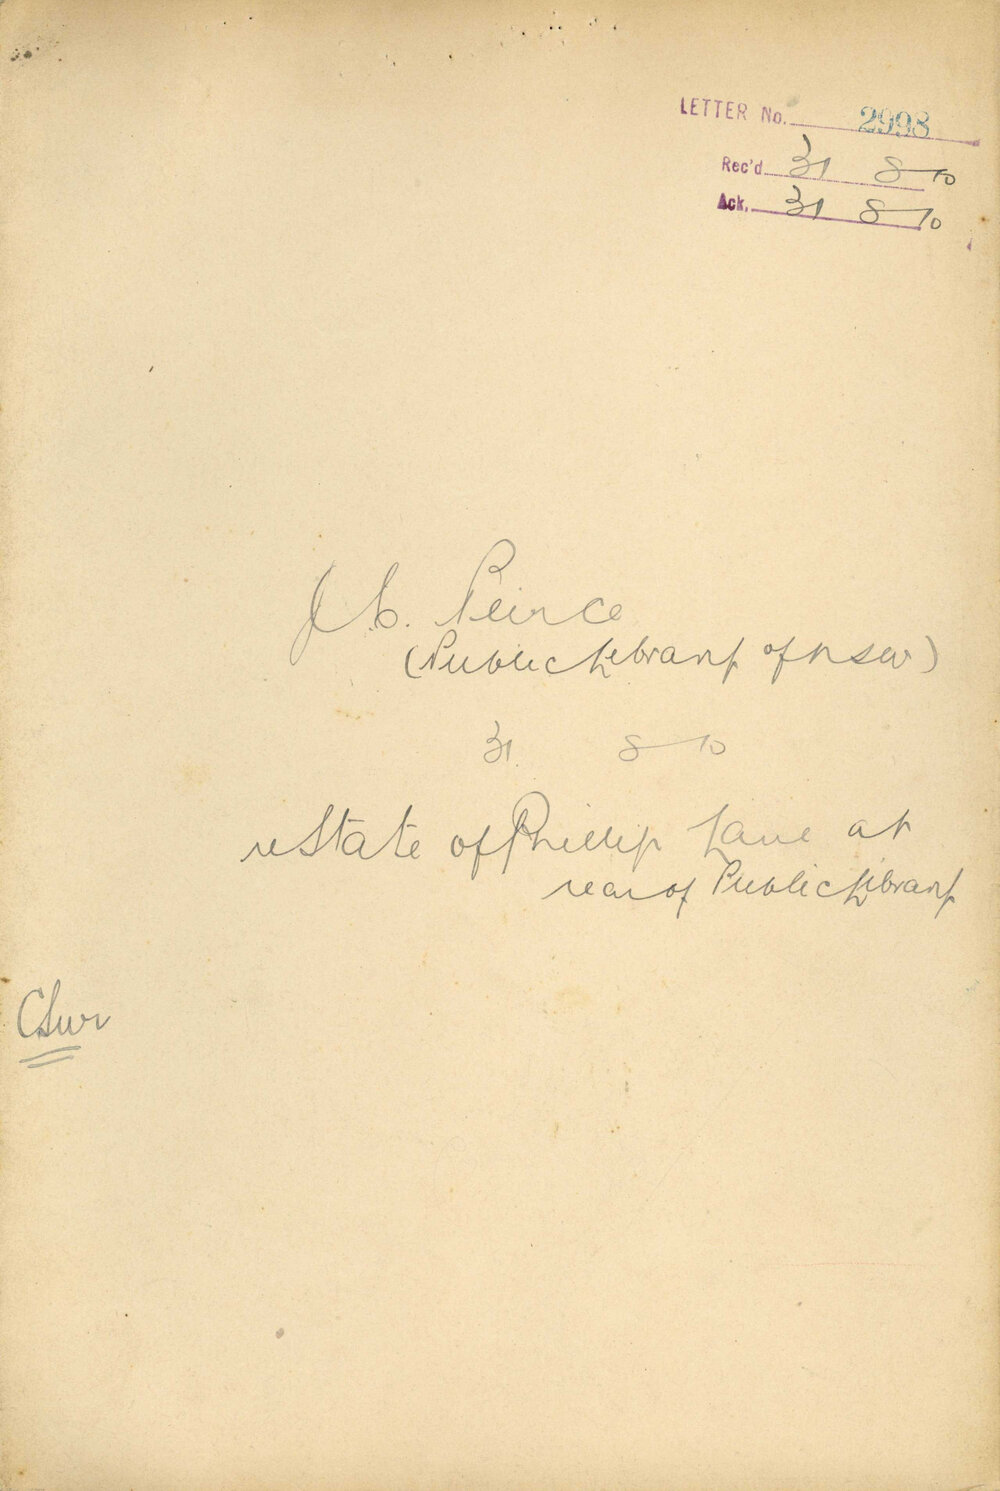 LETTER No. 2998
Rec'd 31 8 10
Ack. 31 8 10
J C. Peirce
(Public Library of NSW)
31 8 10
re State of Phillip Lane at
rear of Public Library